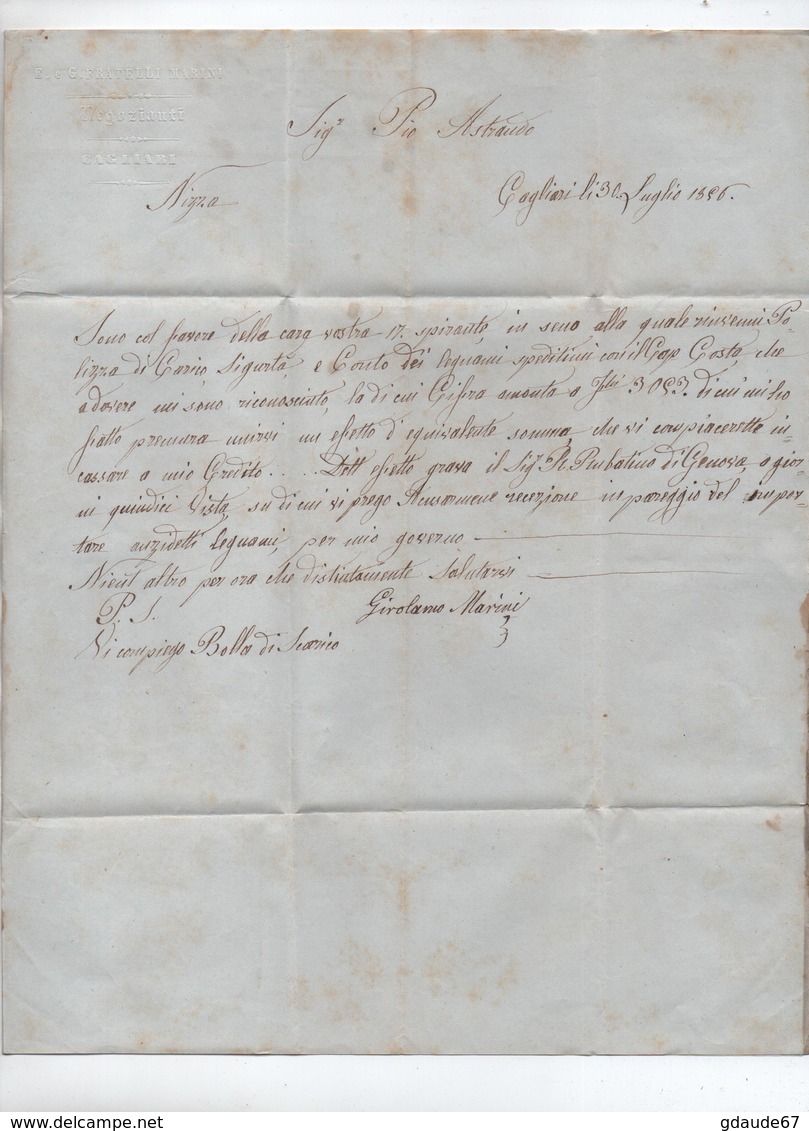 E. & G. FRATELLI MARINI
Negozianti
CAGLIARI
Sigr Pio Astraudo
Nizza
Cagliari li 30 Luglio 1856.
Sono col favore della cara vostra 17. spirante, in seno alla quale rinvenni Po-
lizza di Carico, Sigurtà, e Conto dei legnami speditimi con il Cap Costa, che
a dovere mi sono riconosciuto, la di cui Cifra amonta a 3053. di cui mi ho
fatto premura unirvi un effetto d'equivalente somma, che vi compiacerette in-
cassare a mio Credito.... Dett effetto grava il Sig. R. Rubatino di Genova a gior-
ni quindici Vista, su di cui vi prego Acusarmene recezione in pareggio del impor-
tare anzidetti legnami, per mio governo
Nient altro per ora che distintamente Salutarvi
P. S. Girolamo Marini
Vi compiego Bolla di Scarico
delcampe.net
gdaude67